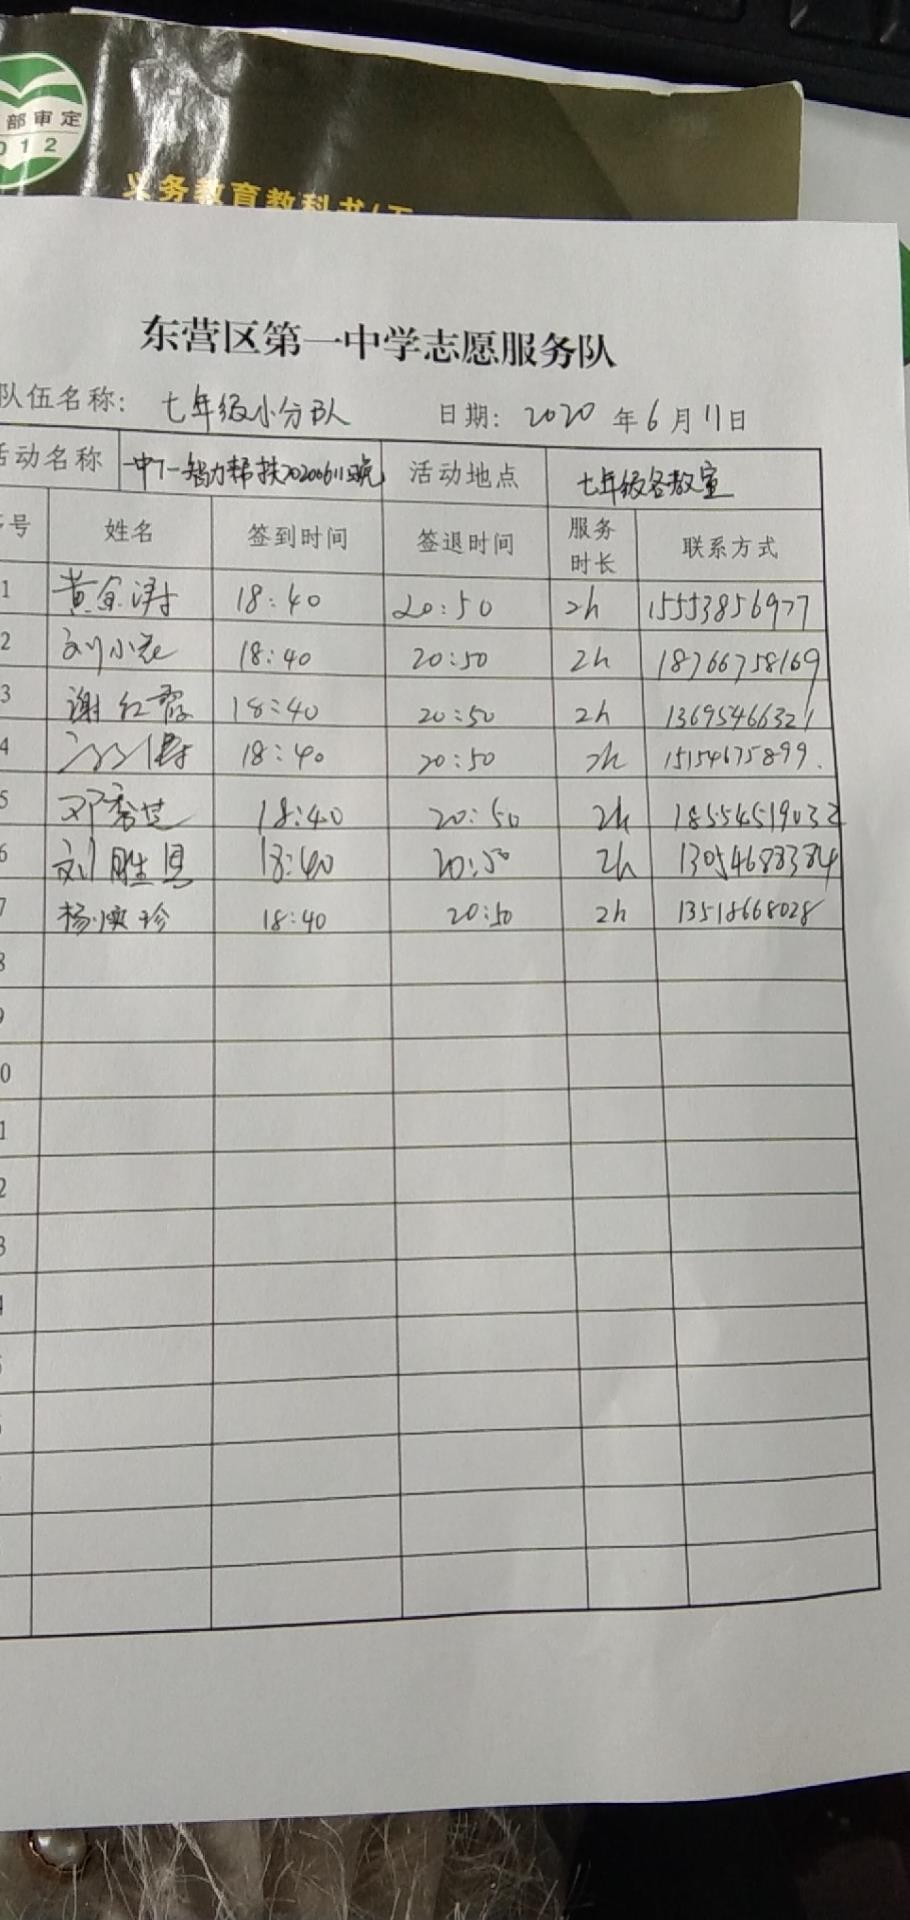 部审定
012
义务教育教科书
东营区第一中学志愿服务队
队伍名称: 七年级小分队 日期: 2020 年 6 月 11 日
活动名称 一中7一智力帮扶20200611晚 活动地点 七年级各教室
序号 姓名 签到时间 签退时间 服务时长 联系方式
1 黄金涛 18:40 20:50 2h 15553856977
2 刘小花 18:40 20:50 2h 18766758169
3 谢红霞 18:40 20:50 2h 13695466321
4 18:40 20:50 2h 15154675899.
5 邓秀芝 18:40 20:50 2h 18554519032
6 刘胜恩 18:40 20:50 2h 13054688384
7 杨焕珍 18:40 20:50 2h 13518668028
8
9
0
1
2
3
4